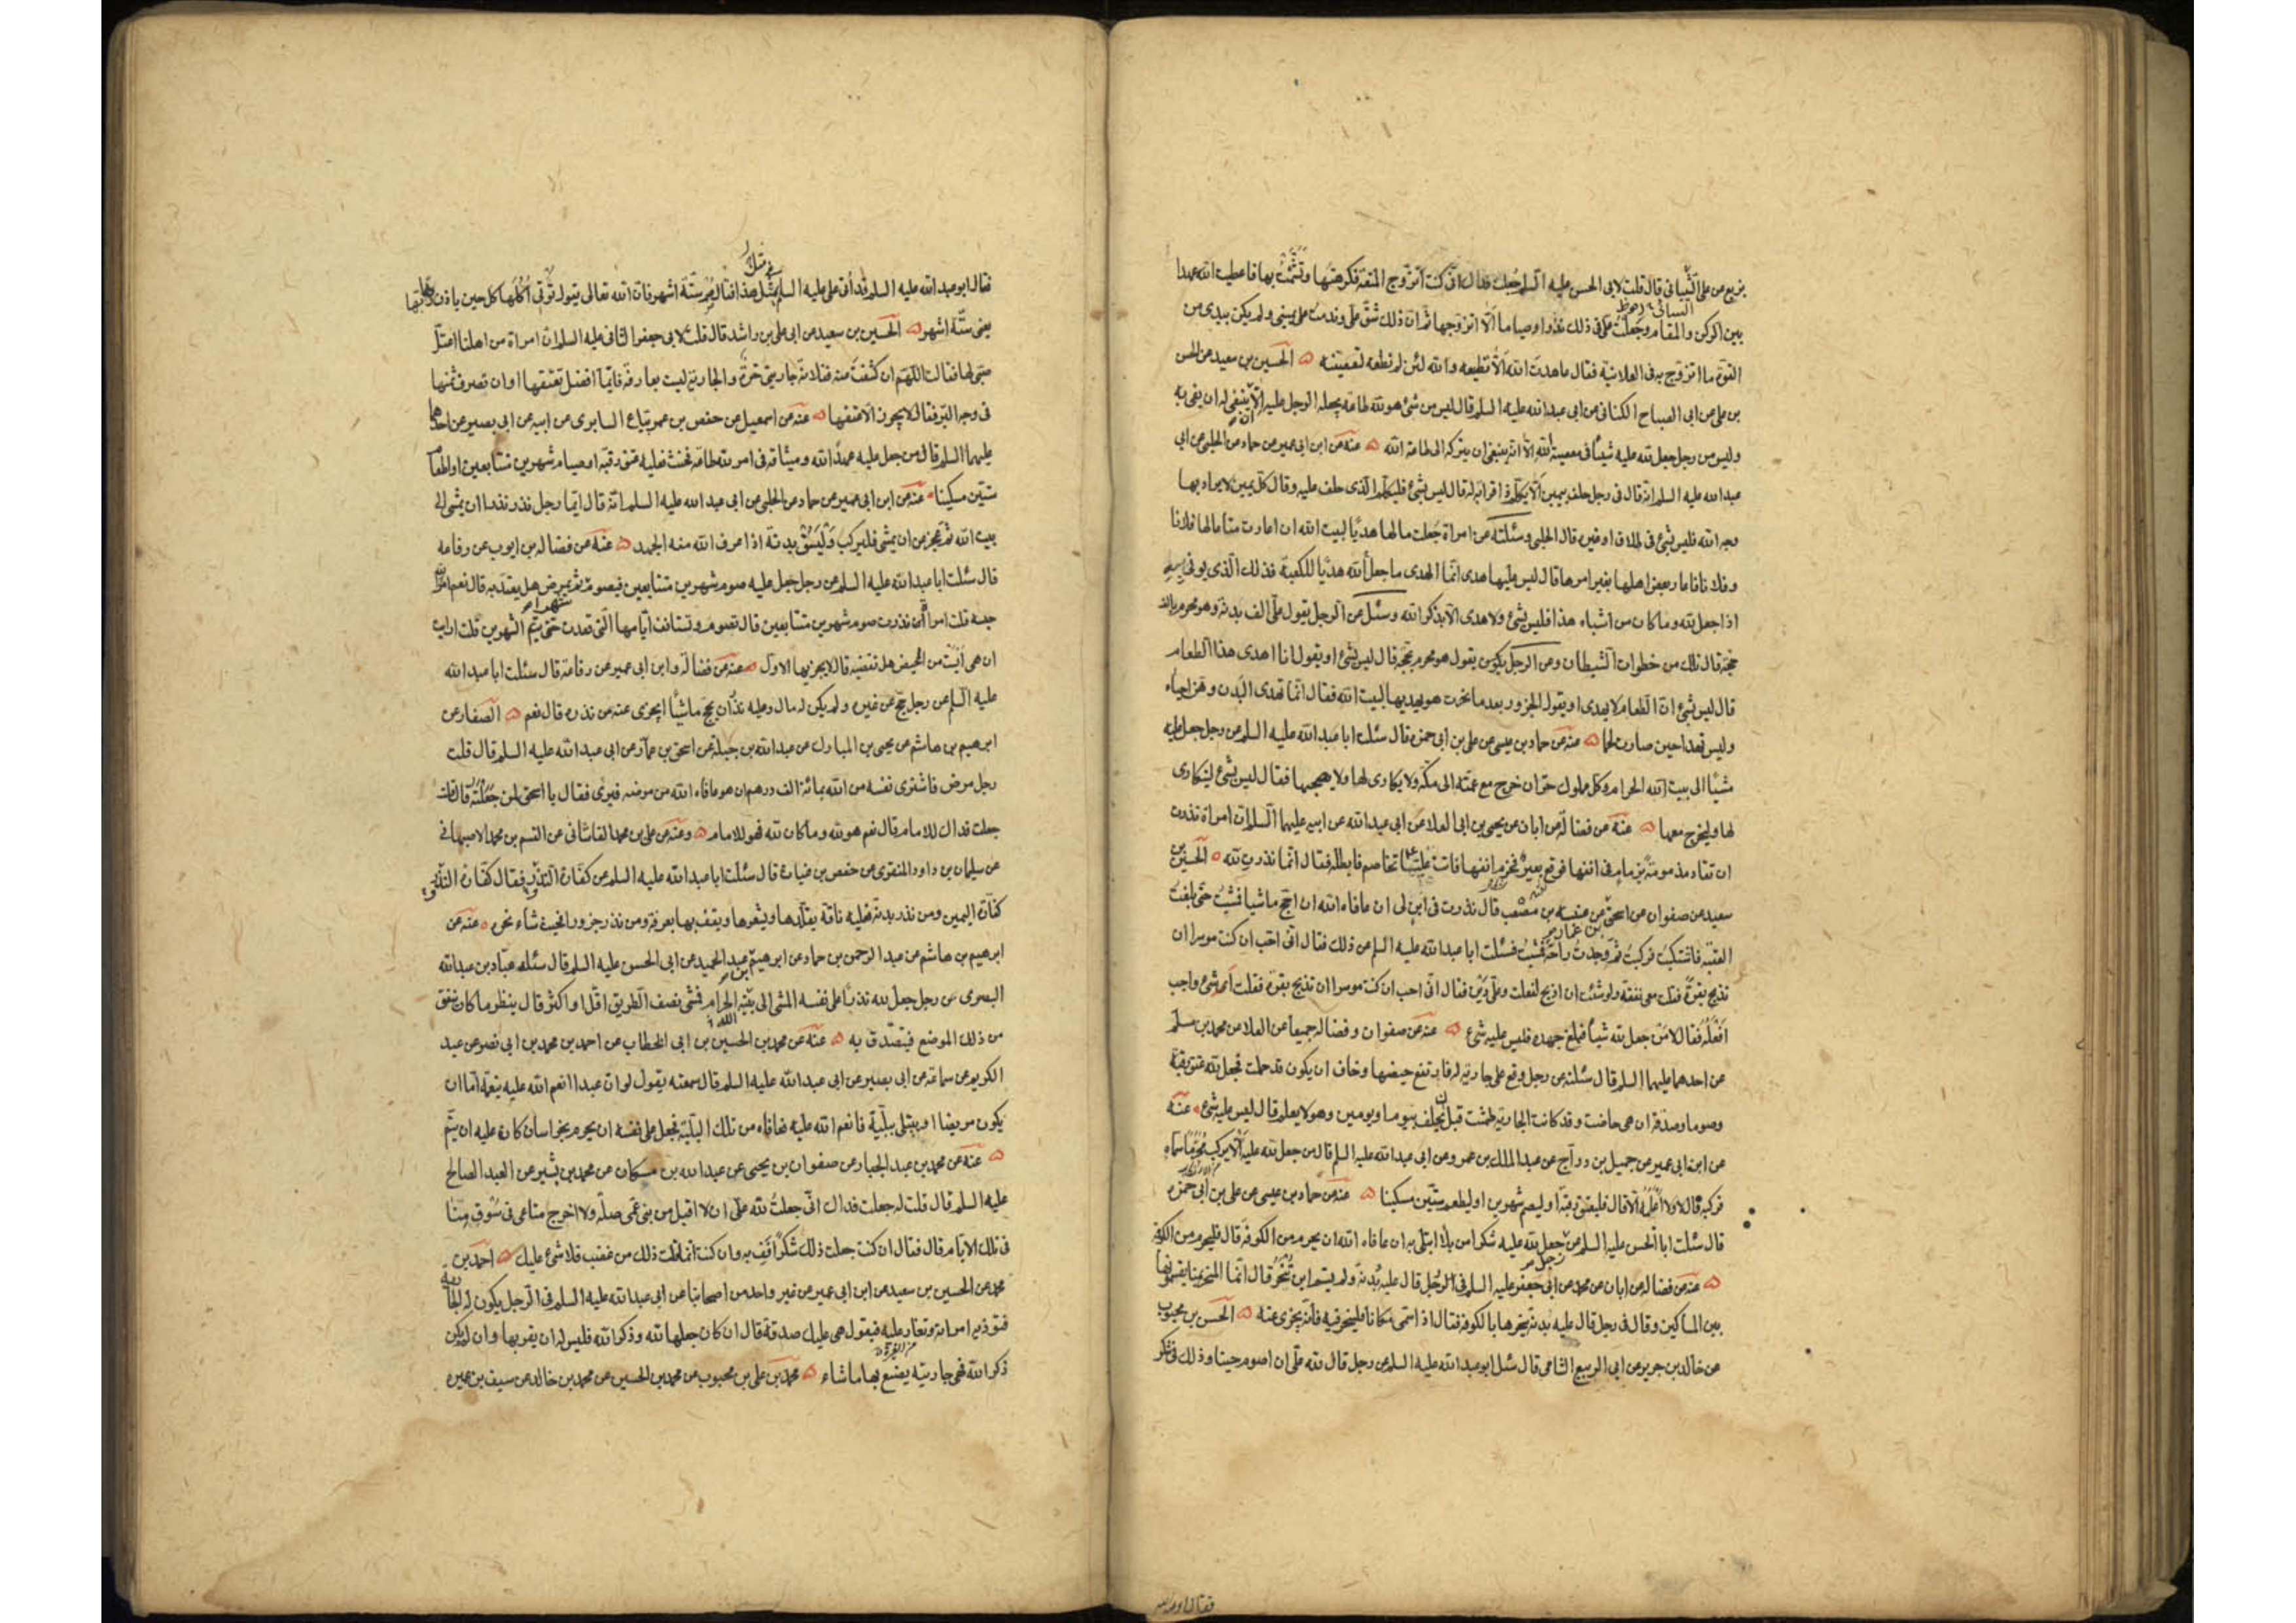 بزيع عن علي السائي قال قلت لابي الحسن عليه السلم جعلت فداك اني كنت اتزوج المتعة فكرهتها وتشئمت بها فاعطيت الله عهدا
بين الركن والمقام وجعلت علي في ذلك نذرا وصياما الا اتزوجها ثم ان ذلك شق علي وندمت على يميني ولم يكن بيدي من
القوة ما اتزوج به في العلانية فقال عاهدت الله الا تطيعه والله لئن لم تطعه لتعصينه الحسين بن سعيد عن الحسن
بن علي عن ابي الصباح الكناني عن ابي عبد الله عليه السلم قال ليس من شئ هو لله طاعة يجعله الرجل عليه الا ينبغي له ان يفي به
وليس من رجل جعل لله عليه شيئا في معصية الله الا انه ينبغي ان يتركه الى طاعة الله عنه عن ابن ابي عمير عن حماد عن الحلبي عن ابي
عبد الله عليه السلم انه قال في رجل حلف بيمين الا يكلم ذا قرابة له قال ليس بشئ فليكلم الذي حلف عليه وقال كل يمين لا يراد بها
وجه الله فليس بشئ في طلاق او غيره قال الحلبي وسئلته عن امراة جعلت مالها هديا لبيت الله ان اعارت متاعا لها فلانا
وفلانا فاعار بعض اهلها بغير امرها قال ليس عليها هدى انما الهدى ما جعل لله هديا للكعبة فذلك الذي يوفى به
اذا جعل لله وما كان من اشباه هذا فليس بشئ ولا هدى الا بذكر الله وسئل عن الرجل يقول علي الف بدنة وهو محرم بالف
حجة قال تلك من خطوات الشيطان وعن الرجل يقول هو محرم بحجة قال ليس بشئ او يقول انا اهدى هذا الطعام
قال ليس بشئ ان الطعام لا يهدى او يقول الجزور بعد ما نحرت هو يهديها لبيت الله فقال انما تهدى البدن وهن احياء
وليس تهدا حين صارت لحما عنه عن حماد بن عيسى عن علي بن ابي حمزة قال سئلت ابا عبد الله عليه السلم عن رجل جعل عليه
مشيا الى بيت الله الحرام وكل مملوك حر ان خرج مع عمته الى مكة ولا يكارى لها ولا صحبها فقال ليس بشئ ليتكارى
لها وليخرج معها عنه عن فضالة عن ابان عن يحيى بن ابي العلا عن ابي عبد الله عن ابيه عليهما السلم ان امراة نذرت
ان تقاد مزمومة بزمام في انفها فوقع بعير فخرم انفها فاتت عليا تخاصم فابطله فقال انما نذرت لله الحسين بن
سعيد عن صفوان عن اسحق عن عنبسة بن مصعب قال نذرت في ابن لي ان عافاه الله ان احج ماشيا فمشيت حتى بلغت
العقبة فاشتكيت فركبت ثم وجدت راحة فمشيت فسئلت ابا عبد الله عليه السلم عن ذلك فقال اني احب ان كنت موسرا ان
تذبح بقرة فقلت معي نفقة ولو شئت ان اذبح لفعلت وعلي دين فقال اني احب ان كنت موسرا ان تذبح بقرة فقلت اشئ واجب
افعله فقال لا من جعل لله شيئا فبلغ جهده فليس عليه شئ عنه عن صفوان وفضالة جميعا عن العلا عن محمد بن مسلم
عن احدهما عليهما السلم قال سئلته عن رجل وقع على جارية له فارتفع حيضها وخاف ان يكون قد حملت فجعل لله عتق رقبة
وصوما وصدقة ان هي حاضت وقد كانت الجارية طمثت قبل ان يحلف بيوم او يومين وهو لا يعلم قال ليس عليه شئ عنه
عن ابن ابي عمير عن جميل بن دراج عن عبد الملك بن عمرو عن ابي عبد الله عليه السلم قال من جعل لله عليه الا يركب محرما سماه
فركبه قال لا ولا اعلمه الا قال فليعتق رقبة او ليصم شهرين او ليطعم ستين مسكينا عنه عن حماد بن عيسى عن علي بن ابي حمزة
قال سئلت ابا الحسن عليه السلم عن رجل جعل لله عليه شكرا من بلا ابتلى به ان عافاه الله ان يحرم من الكوفة قال فليحرم من الكوفة
عنه عن فضالة عن ابان عن محمد عن ابي جعفر عليه السلم في الرجل قال عليه بدنة ولم يسم اين تنحر قال انما المنحر بمنا يقسمونها
بين المساكين وقال في رجل قال عليه بدنة ينحرها بالكوفة فقال اذا سمى مكانا فلينحر فيه فانه يجزى عنه الحسن بن محبوب
عن خالد بن جرير عن ابي الربيع الشامي قال سئل ابو عبد الله عليه السلم عن رجل قال لله علي ان اصوم حينا وذلك في شكر
فقال ابو عبد الله
فقال ابو عبد الله عليه السلم قد أتى علي عليه السلم في مثل هذا فقال صم ستة اشهر فان الله تعالى يقول تؤتي اكلها كل حين باذن ربها
يعني ستة اشهر الحسين بن سعيد عن ابي علي بن راشد قال قلت لابي جعفر الثاني عليه السلم ان امراة من اهلنا اعتل
صبي لها فقالت اللهم ان كشفت عنه ففلانة جاريتي حرة والجارية ليست بعارفة فايما افضل تعتقها او ان تصرف ثمنها
في وجه البر فقال لا يجوز الا عتقها عنه عن اسمعيل عن حفص بن عمر بياع السابري عن ابيه عن ابي بصير عن احدهما
عليهما السلم قال من جعل عليه عهد الله وميثاقه في امر لله طاعة فحنث فعليه عتق رقبة او صيام شهرين متتابعين او اطعام
ستين مسكينا عنه عن ابن ابي عمير عن حماد عن الحلبي عن ابي عبد الله عليه السلم انه قال ايما رجل نذر نذرا ان يمشي الى
بيت الله ثم عجز عن ان يمشي فليركب وليسق بدنة اذا عرف الله منه الجهد عنه عن فضالة بن ايوب عن رفاعة
قال سئلت ابا عبد الله عليه السلم عن رجل جعل عليه صوم شهرين متتابعين فيصوم ثم يمرض هل يعتد به قال نعم امر الله
حبسه قلت امراة نذرت صوم شهرين متتابعين قال تصوم وتستانف ايامها التي قعدت حتى يتم الشهرين قلت ارايت
ان هي آيست من المحيض هل تقضيه قال لا يجزيها الاول عنه عن فضالة وابن ابي عمير عن رفاعة قال سئلت ابا عبد الله
عليه السلم عن رجل حج عن غيره ولم يكن له مال وعليه نذر ان يحج ماشيا ايجزى عنه من نذره قال نعم الصفار عن
ابرهيم بن هاشم عن يحيى بن المبارك عن عبد الله بن جبلة عن اسحق بن عمار عن ابي عبد الله عليه السلم قال قلت
رجل مرض فاشترى نفسه من الله بمائة الف درهم ان هو عافاه الله من مرضه فبرى فقال يا اسحق لمن جعلته قال قلت
جعلت فداك للامام قال نعم هو لله وما كان لله فهو للامام وعنه عن علي بن محمد القاشاني عن القسم بن محمد الاصبهاني
عن سليمان بن داود المنقري عن حفص بن غياث قال سئلت ابا عبد الله عليه السلم عن كفارة النذور فقال كفارة النذور
كفارة اليمين ومن نذر بدنة فعليه ناقة يقلدها ويشعرها ويقف بها بعرفة ومن نذر جزورا فحيث شاء نحره عنه عن
ابرهيم بن هاشم عن عبد الرحمن بن حماد عن ابرهيم بن عبد الحميد عن ابي الحسن عليه السلم قال سئله عباد بن عبد الله
البصري عن رجل جعل لله نذرا على نفسه المشي الى بيت الله الحرام فمشى نصف الطريق اقل او اكثر قال ينظر ما كان ينفق
من ذلك الموضع فيتصدق به عنه عن محمد بن الحسين بن ابي الخطاب عن احمد بن محمد بن ابي نصر عن عبد
الكريم عن سماعة عن ابي بصير عن ابي عبد الله عليه السلم قال سمعته يقول لو ان عبدا انعم الله عليه بنعمة اما ان
يكون مريضا او يبتلى ببلية فانعم الله عليه فعافاه من تلك البلية فجعل على نفسه ان يحرم بخراسان كان عليه ان يتم
عنه عن محمد بن عبد الجبار عن صفوان بن يحيى عن عبد الله بن مسكان عن محمد بن بشير عن العبد الصالح
عليه السلم قال قلت له جعلت فداك اني جعلت لله علي ان لا اقبل من بني عمي صلة ولا اخرج متاعي في سوق منى
في تلك الايام قال فقال ان كنت جعلت ذلك شكرا فف به وان كنت انما قلت ذلك من غضب فلا شئ عليك احمد بن
محمد عن الحسين بن سعيد عن ابن ابي عمير عن غير واحد من اصحابنا عن ابي عبد الله عليه السلم في الرجل يكون له الجارية
فتوذيه امراته وتغار عليه فيقول هي عليك صدقة قال ان كان جعلها لله وذكر الله فليس له ان يقربها وان لم يكن
ذكر الله فهي جاريته يصنع بها ما شاء محمد بن علي بن محبوب عن محمد بن الحسين عن محمد بن خالد عن سيف بن عميرة